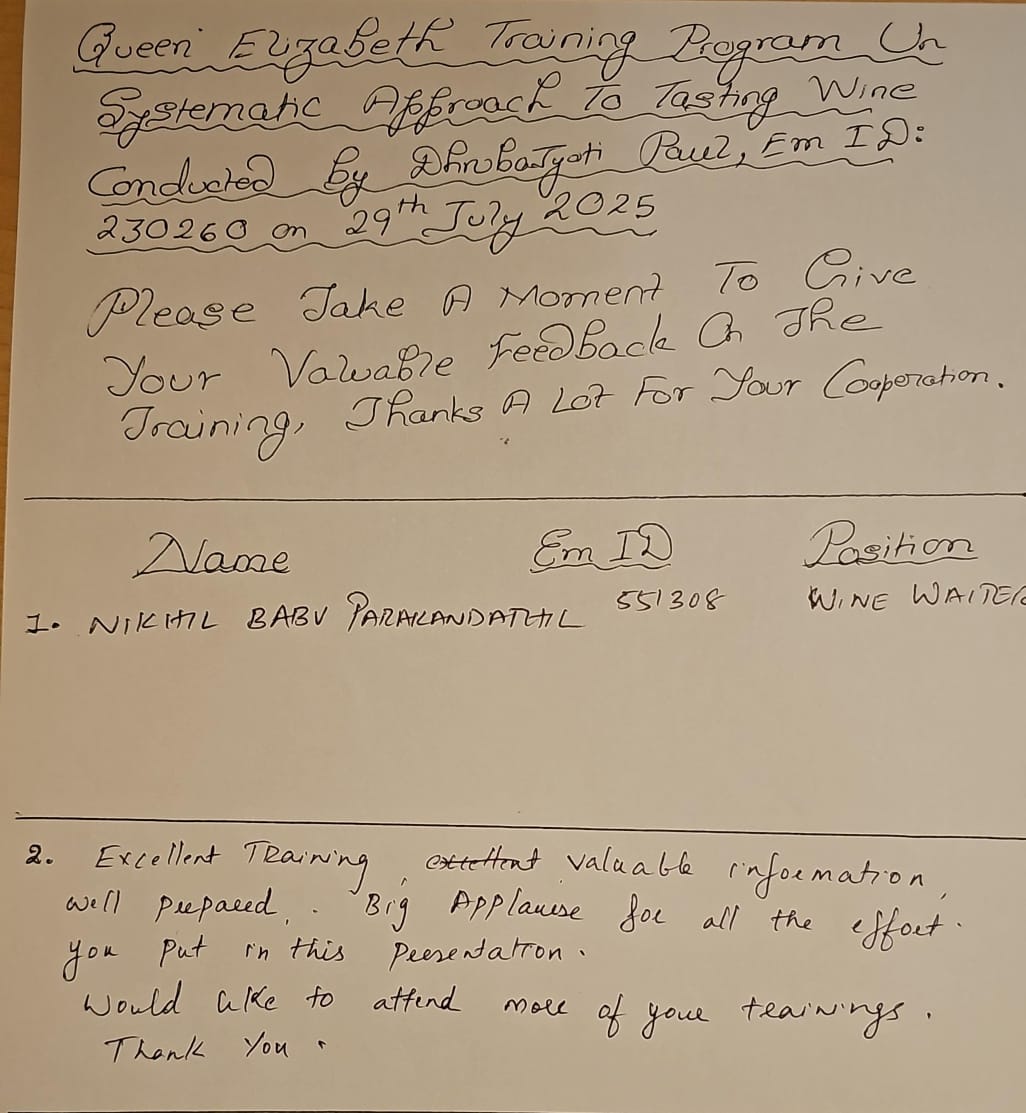 Queen Elizabeth Training Program On
Systematic Approach To Tasting Wine
Conducted By Dhrubajyoti Paul, Em ID:
230260 on 29th July 2025
Please Take A Moment To Give
Your Valuable Feedback On The
Training, Thanks A Lot For Your Cooperation.
Name Em ID Position
1. NIKHIL BABU PARAKANDATHIL 551308 WINE WAITER
2. Excellent Training, excellent valuable information,
well prepared. Big Applause for all the effort.
you put in this Presentation.
Would like to attend more of your trainings.
Thank You.